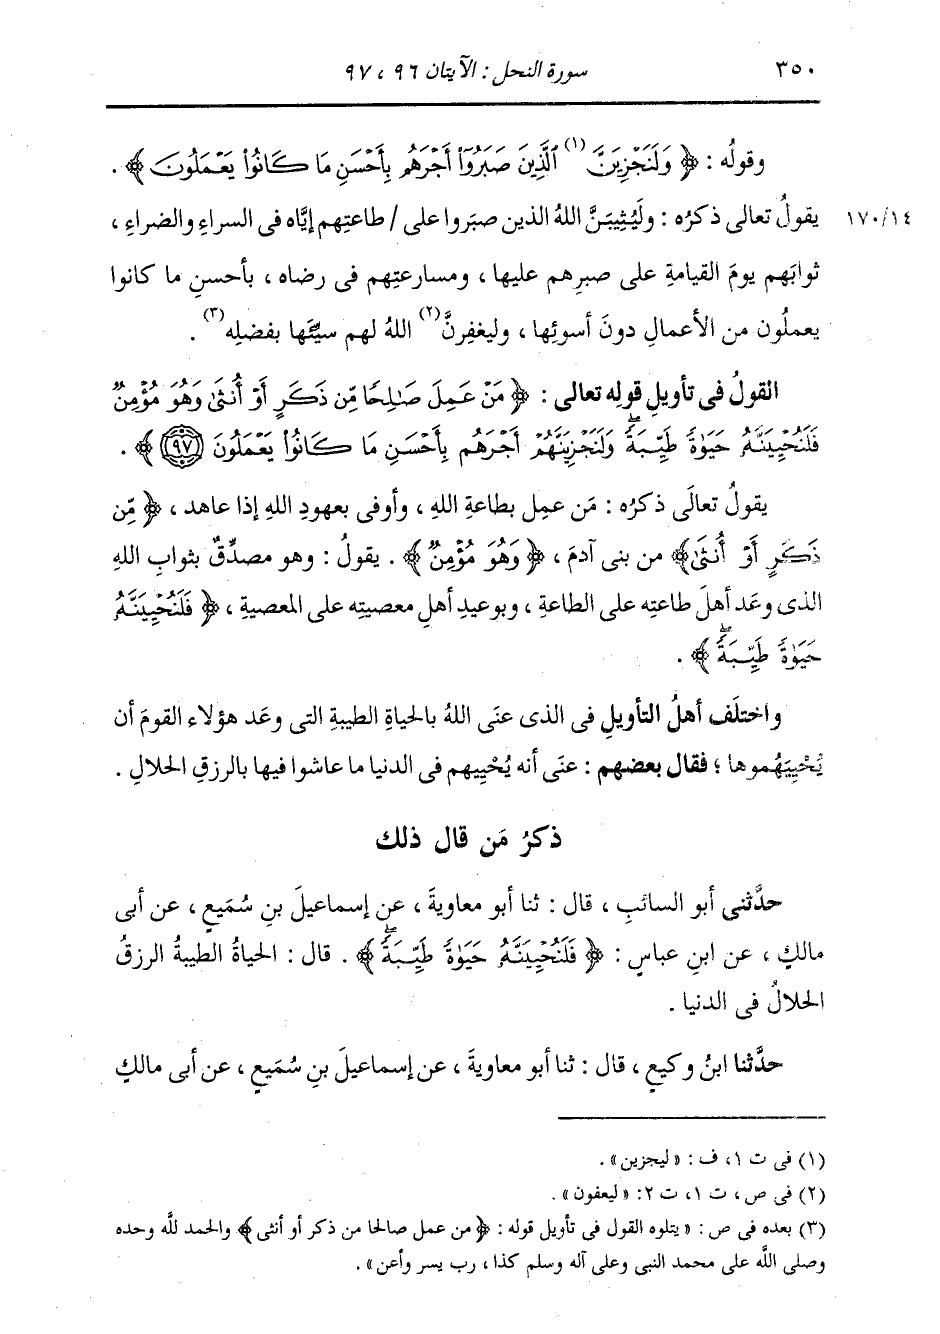 ٣٥٠ سورة النحل : الآيتان ٩٦ ، ٩٧
وقولُه : ﴿ وَلَنَجْزِيَنَّ (١) الَّذِينَ صَبَرُوٓا۟ أَجْرَهُم بِأَحْسَنِ مَا كَانُوا۟ يَعْمَلُونَ ﴾ .
١٧٠/١٤ يقولُ تعالى ذكرُه : ولَيُثِيبَنَّ اللهُ الذين صبَروا على / طاعتِهم إيَّاه فى السراءِ والضراءِ ،
ثوابَهم يومَ القيامةِ على صبرِهم عليها ، ومسارعتِهم فى رضاه ، بأحسنِ ما كانوا
يعملُون من الأعمالِ دونَ أسوئِها ، وليغفِرنَّ (٢) اللهُ لهم سيِّئَها بفضلِه (٣) .
القولُ فى تأويلِ قولِه تعالى : ﴿ مَنْ عَمِلَ صَٰلِحًا مِّن ذَكَرٍ أَوْ أُنثَىٰ وَهُوَ مُؤْمِنٌ
فَلَنُحْيِيَنَّهُۥ حَيَوٰةً طَيِّبَةً ۖ وَلَنَجْزِيَنَّهُمْ أَجْرَهُم بِأَحْسَنِ مَا كَانُوا۟ يَعْمَلُونَ ﴿٩٧﴾ ﴾ .
يقولُ تعالَى ذكرُه : مَن عمِل بطاعةِ اللهِ ، وأوفى بعهودِ اللهِ إذا عاهد ، ﴿ مِّن
ذَكَرٍ أَوْ أُنثَىٰ﴾ من بنى آدمَ ، ﴿ وَهُوَ مُؤْمِنٌ ﴾ . يقولُ : وهو مصدِّقٌ بثوابِ اللهِ
الذى وعَد أهلَ طاعتِه على الطاعةِ ، وبوعيدِ أهلِ معصيتِه على المعصيةِ ، ﴿ فَلَنُحْيِيَنَّهُۥ
حَيَوٰةً طَيِّبَةً ۖ ﴾ .
واختلَف أهلُ التأويلِ فى الذى عنَى اللهُ بالحياةِ الطيبةِ التى وعَد هؤلاء القومَ أن
يُحْيِيَهُموها ؛ فقال بعضهم : عنَى أنه يُحْيِيهم فى الدنيا ما عاشوا فيها بالرزقِ الحلالِ .
ذكرُ مَن قال ذلك
حدَّثنى أبو السائبِ ، قال : ثنا أبو معاويةَ ، عن إسماعيلَ بنِ سُمَيعٍ ، عن أبى
مالكٍ ، عن ابنِ عباسٍ : ﴿ فَلَنُحْيِيَنَّهُۥ حَيَوٰةً طَيِّبَةً ۖ ﴾ . قال : الحياةُ الطيبةُ الرزقُ
الحلالُ فى الدنيا .
حدَّثنا ابنُ وكيعٍ ، قال : ثنا أبو معاويةَ ، عن إسماعيلَ بنِ سُمَيعٍ ، عن أبى مالكٍ
(١) فى ت ١ ، ف : « ليجزين » .
(٢) فى ص ، ت ١ ، ت ٢ : « ليعفون » .
(٣) بعده فى ص : « يتلوه القول فى تأويل قوله : ﴿ من عمل صالحا من ذكر أو أنثى ﴾ والحمد للَّه وحده
وصلى اللَّه على محمد النبى وعلى آله وسلم كذا ، رب يسر وأعن » .